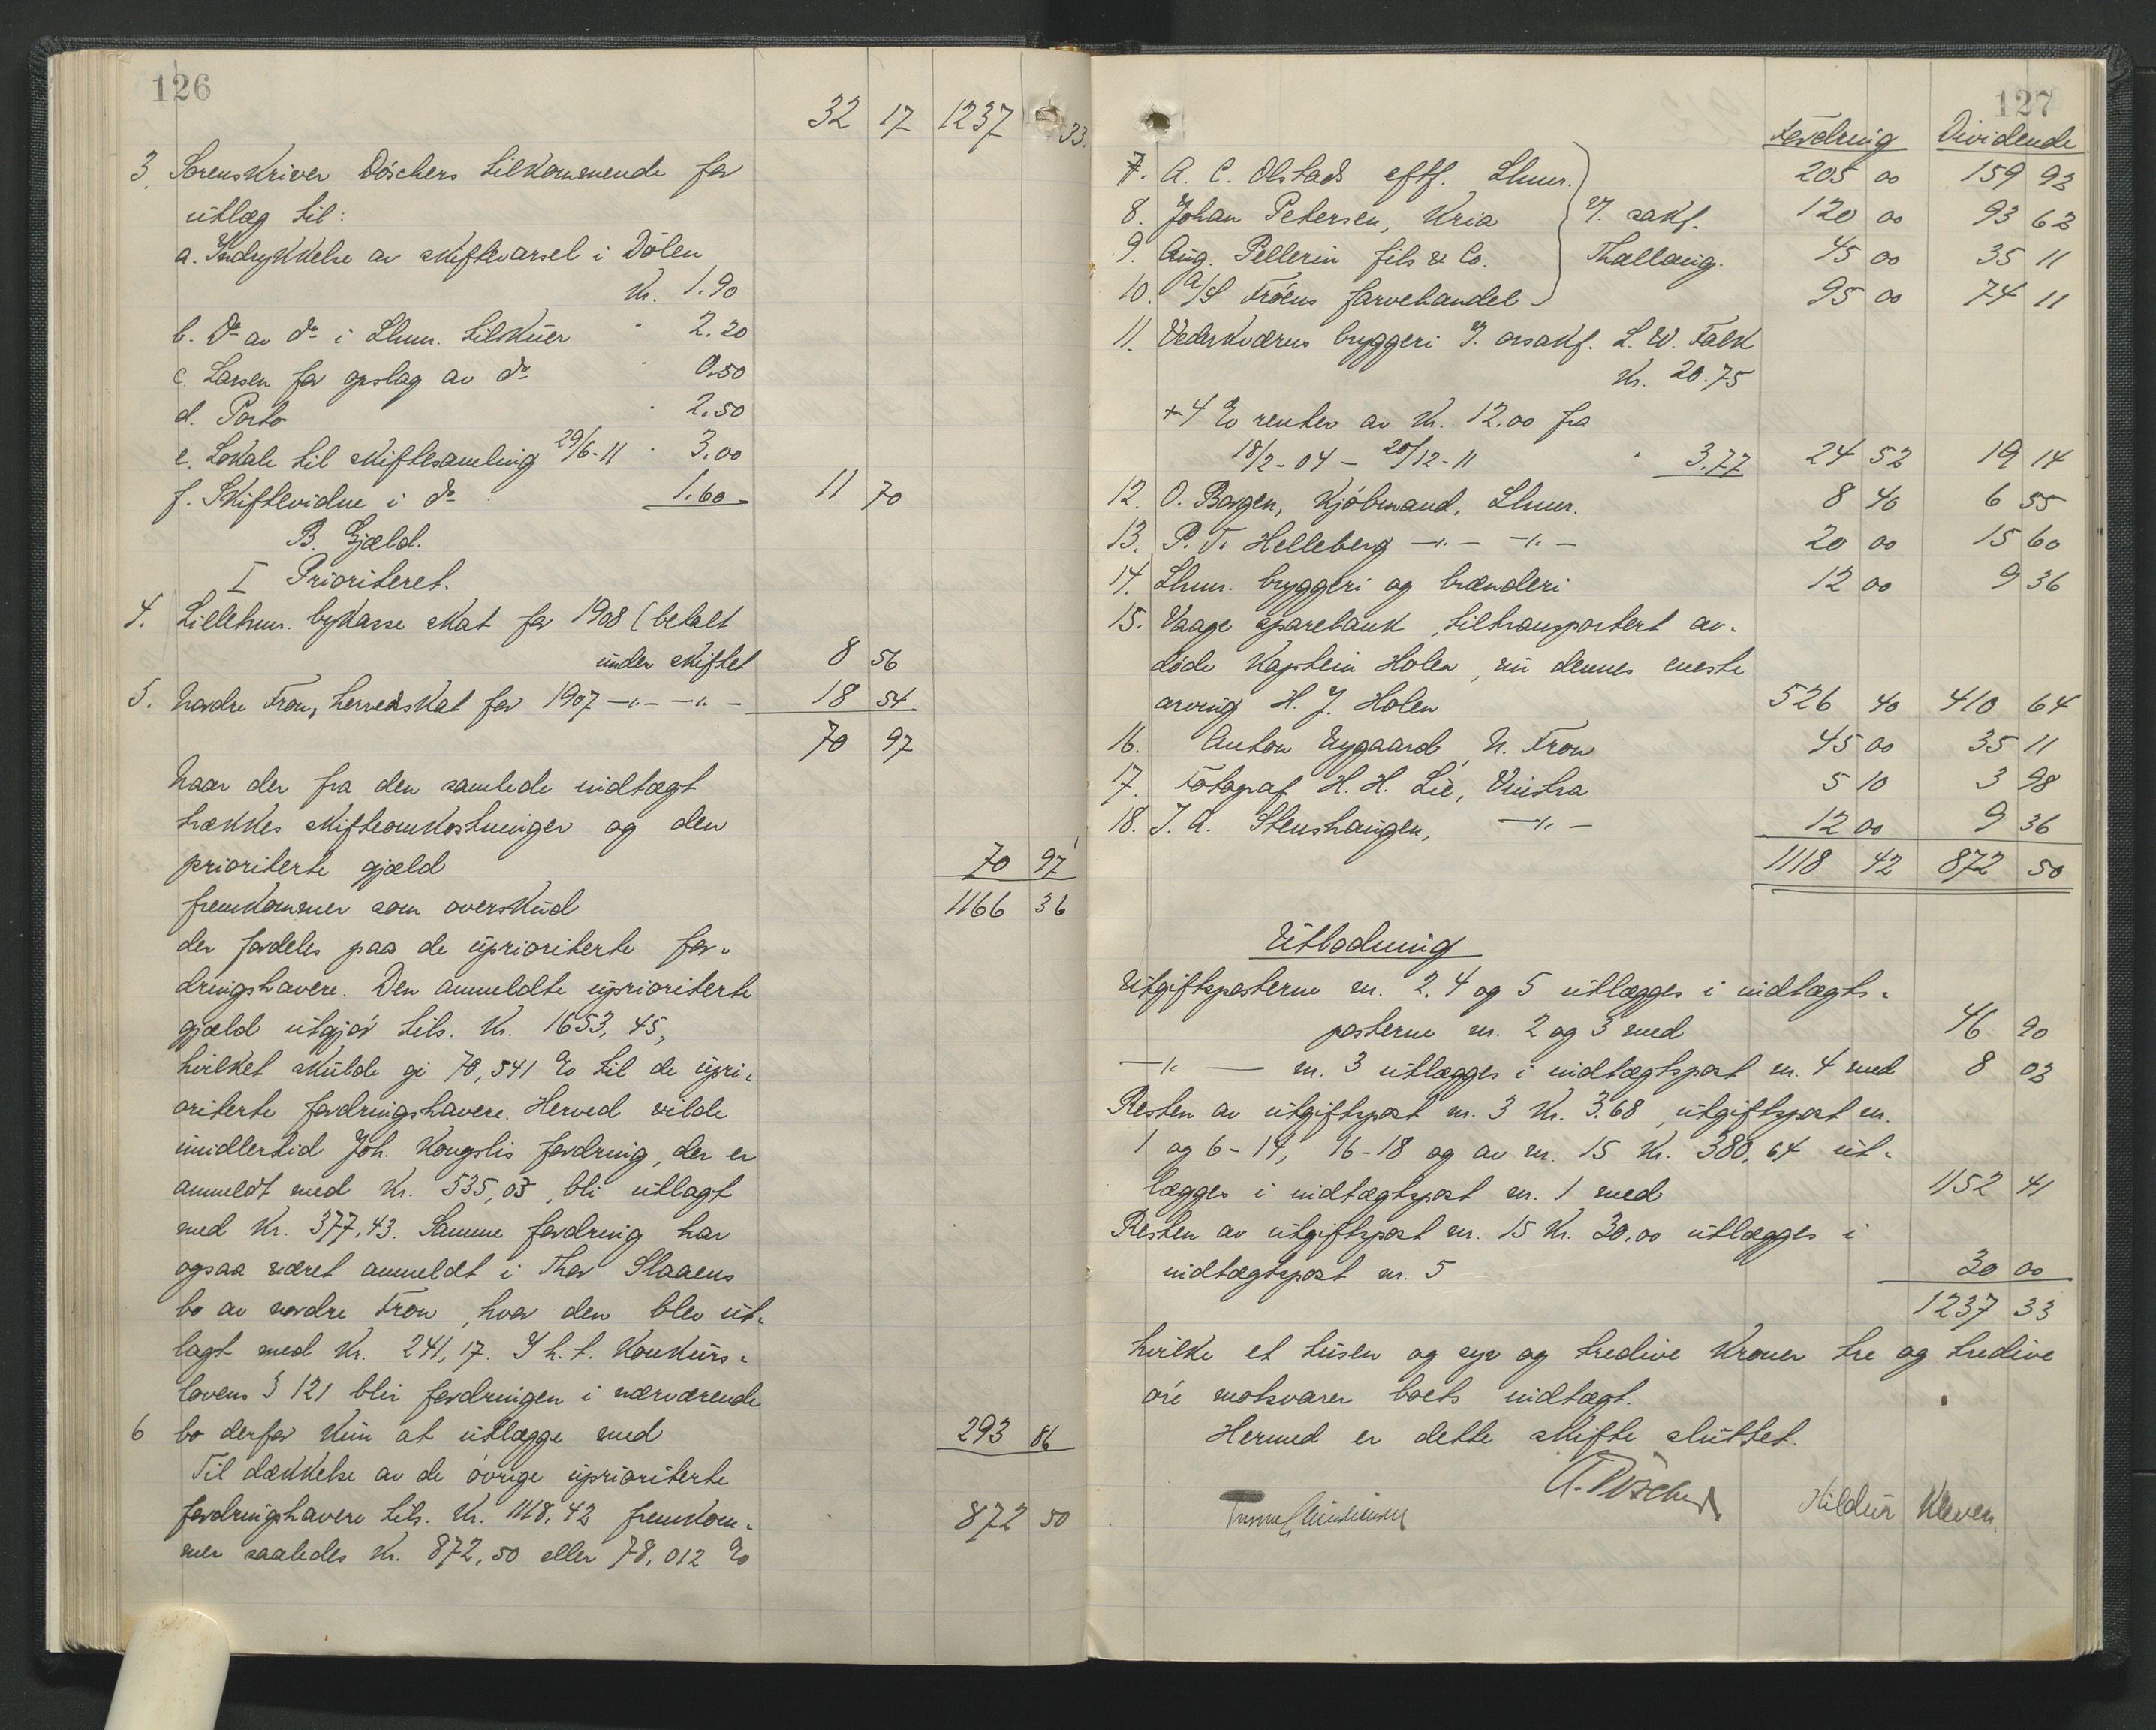 126
32 17 1237 33.
3. Sorenskriver Döschers tilkommende for
utlæg til:
a. Indrykkelse av skiftevarsel i Dölen
Kr. 1.90
b. Do av do i Lhmr. tilskuer " 2.20
c. Larsen for opslag av do " 0.50
d. Porto " 2.50
e. Lokale til skiftesamling 29/6-11 " 3.00
f. Skiftevidne i do 1.60 11 70
B. Gjæld.
I Prioritert.
4. Lillehmr. bykasse skat for 1908 (betalt
under skiftet 8 56
5. Nordre Fron, herredskat for 1907 -"- -"- 18 54
70 97
Naar der fra den samlede indtægt
trækkes skifteomkostninger og den
prioriterte gjæld 70 97
fremkommer som overskud 1166 36
der fordeles paa de uprioriterte for-
dringshavere. Den anmeldte uprioriterte
gjæld utgjør tils. Kr. 1653,45,
hvilket skulde gi 70,541 % til de upri-
oriterte fordringshavere. Herved vilde
imidlertid Joh. Kongslis fordring, der er
anmeldt med Kr. 535,03, bli utlagt
med Kr. 377,43. Samme fordring har
ogsaa været anmeldt i Thor Slaaens
bo av nordre Fron, hvor den blev ut-
lagt med Kr. 241,17. I h. t. Konkurs-
lovens § 121 blir fordringen i nærværende
6 bo derfor kun at utlægge med 293 86
Til dækkelse av de övrige uprioriterte
fordringshavere tils. Kr. 1118,42 fremkom-
mer saaledes Kr. 872,50 eller 78,012 % 872 50
127
Fordring Dividende
7. A. C. Olstads eftf. Lhmr. 205 00 159 93
8. Johan Petersen, Kria 120 00 93 62
9. Aug. Pellerin fils & Co. 45 00 35 11
10. A/S Fröens farvehandel 95 00 74 11
v. sakf.
Thallaug.
11. Vederkværns bryggeri v. osakf. L. W. Falk
Kr. 20.75
+ 4 % renter av Kr. 12.00 fra
18/2-04 - 20/12-11 " 3.77 24 52 19 14
12. O. Borgen, Kjöbmand, Lhmr. 8 40 6 55
13. P. T. Helleberg -"- -"- 20 00 15 60
14. Lhmr. bryggeri og brænderi 12 00 9 36
15. Vaage sparebank, tiltransportert av-
døde Kaptein Holen, nu dennes eneste
arving H. J. Holen 526 40 410 64
16. Anton Nygaard, N. Fron 45 00 35 11
17. Fotograf H. H. Lie, Vinstra 5 10 3 98
18. J. A. Stenshaugen, -"- 12 00 9 36
1118 42 872 50
Utlodning
Utgiftsposterne nr. 2, 4 og 5 utlægges i indtægts-
posterne nr. 2 og 3 med 46 90
-"- nr. 3 utlægges i indtægtspost nr. 4 med 8 02
Resten av utgiftspost nr. 3 Kr. 3.68, utgiftspost nr.
1 og 6-14, 16-18 og av nr. 15 Kr. 380,64 ut-
lægges i indtægtspost nr. 1 med 1152 41
Resten av utgiftspost nr. 15 Kr. 30.00 utlægges i
indtægtspost nr. 5 30 00
1237 33
hvilke et tusen og syv og tredive Kroner tre og tredive
øre motsvarer boets indtægt.
Hermed er dette skifte sluttet.
A. Döscher
Hildur Kleven.